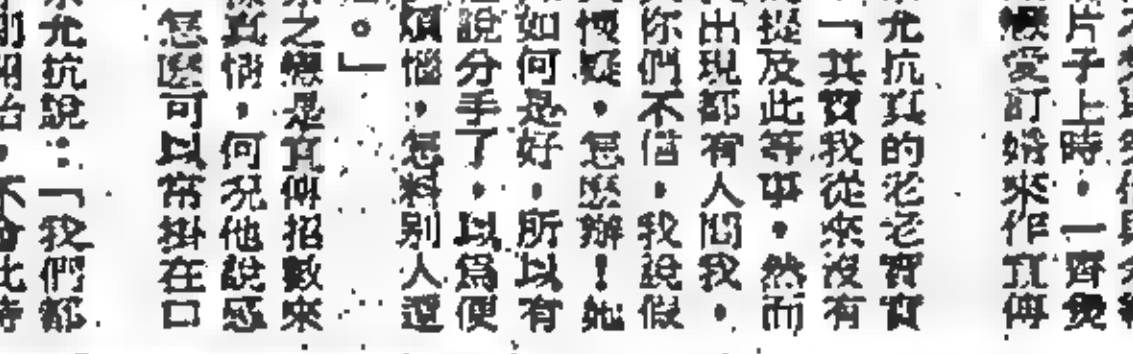 片子上時，一齊
愛訂婚來作宣傳
允抗真的老老實實
「其實我從來沒有
提及此等事，然而
出現都有人問我，
你們不信，我說假
懷疑，怎麽辦！她
如何是好，所以有
說分手了，以爲便
煩惱，怎料別人還
。」
之戀是宣傳招數來
真情，何況他說感
怎麽可以常掛在口
允抗說：「我們都